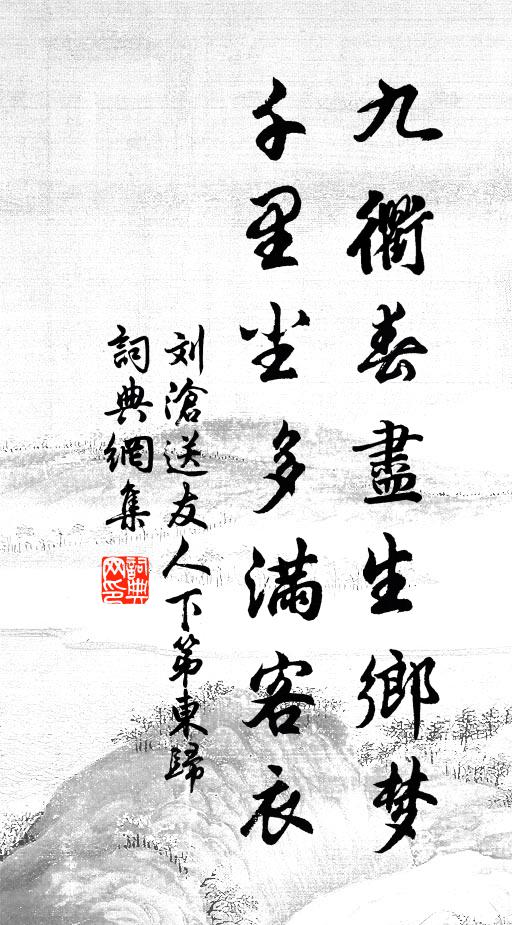 九衢春盡生鄉梦
千里尘多满客衣
刘滄送友人下第東歸
詞典網集
詞典网印